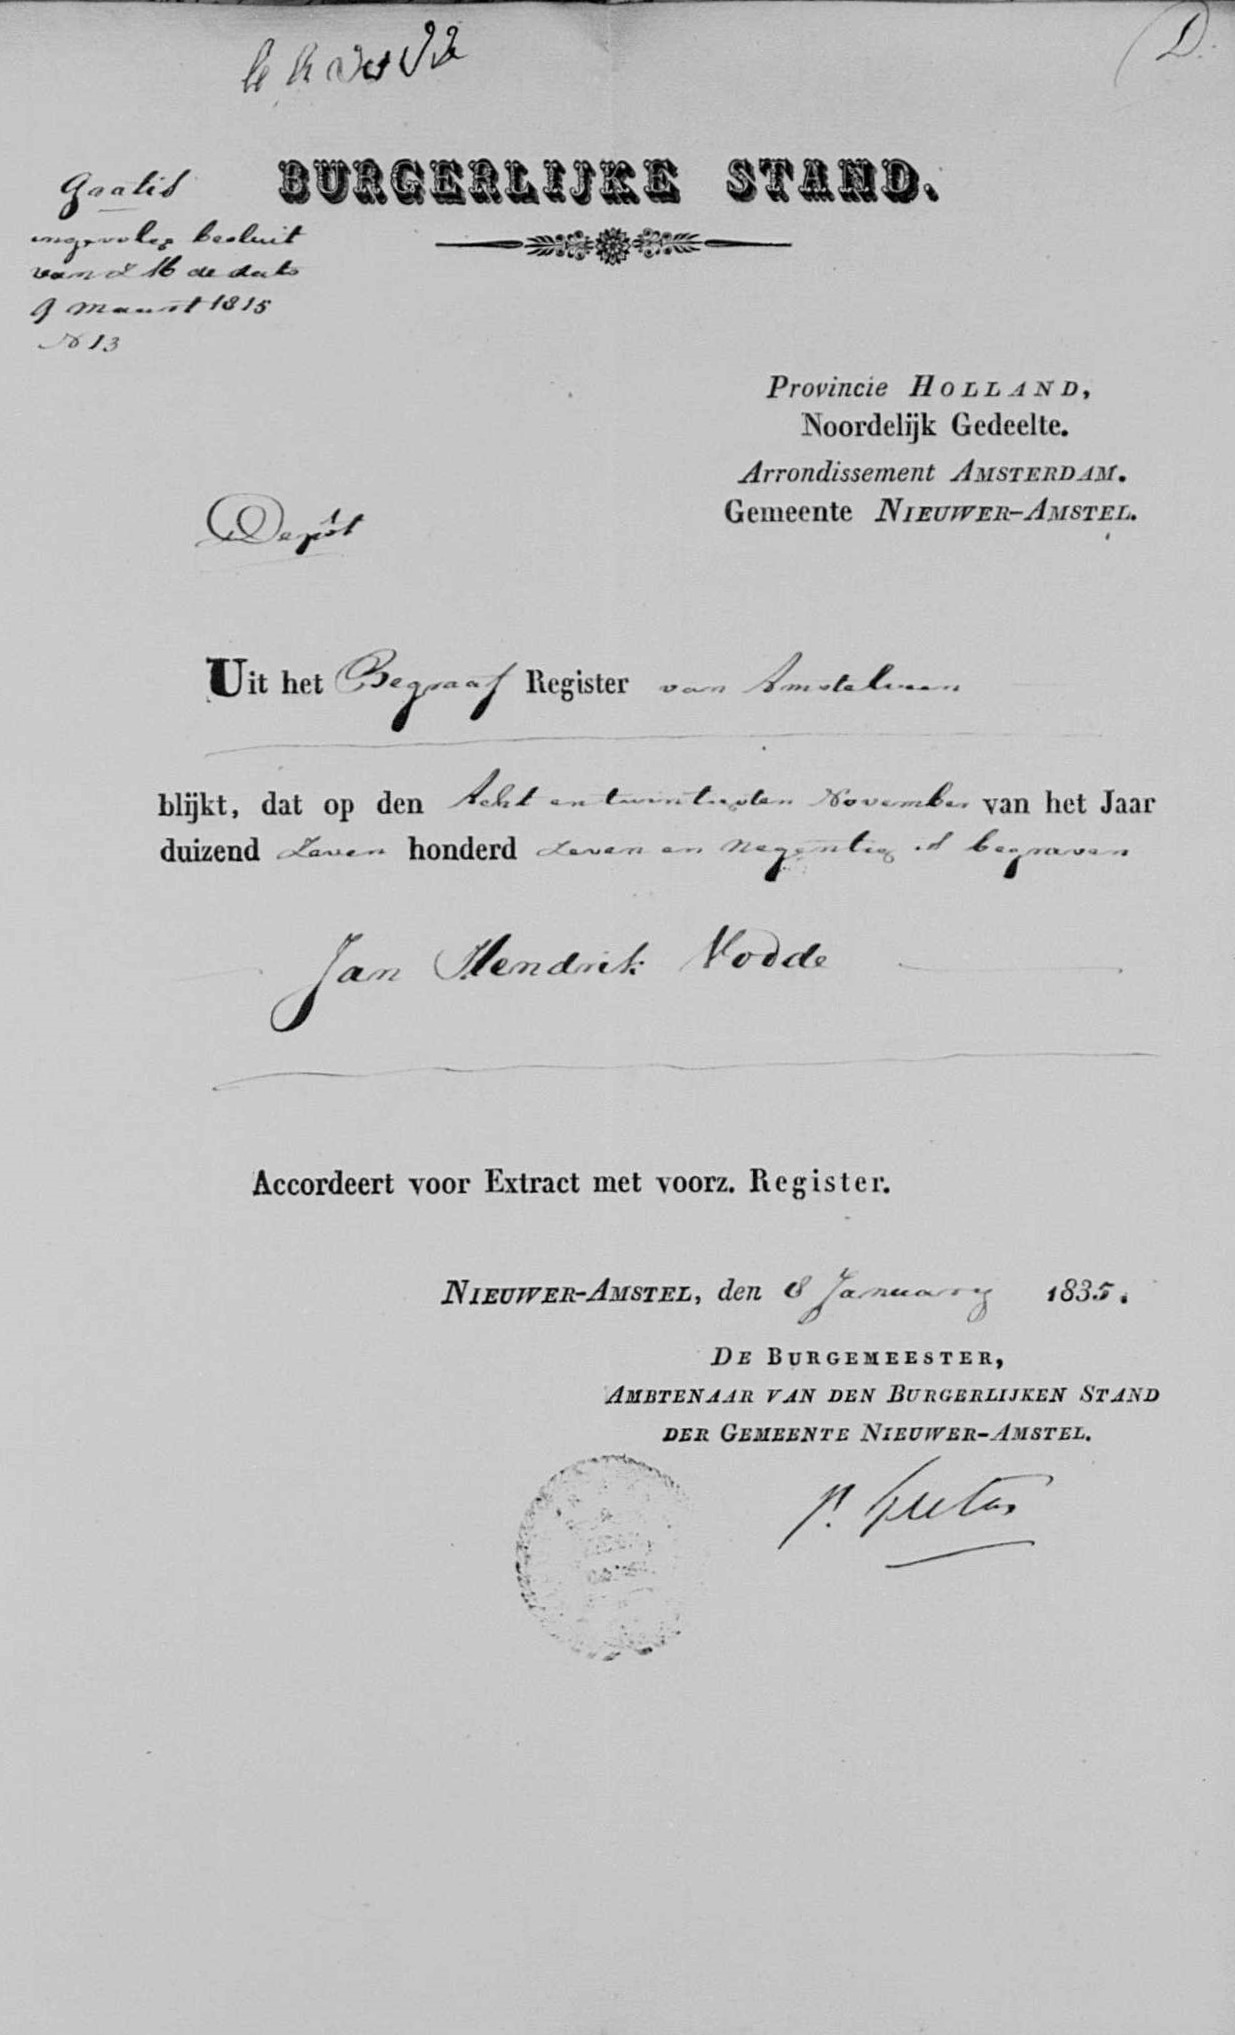 D.
BURGERLIJKE STAND.
Gratis
ingevolge besluit
van Z M de dato
9 Maart 1815
N 13
Provincie HOLLAND,
Noordelijk Gedeelte.
Arrondissement AMSTERDAM.
Gemeente NIEUWER-AMSTEL.
Depôt
Uit het Begraaf Register van Amstelveen
blijkt, dat op den Acht en twintigsten November van het Jaar
duizend Zeven honderd zeven en negentig is begraven
Jan Hendrik Vodde
Accordeert voor Extract met voorz. Register.
NIEUWER-AMSTEL, den 8 January 1835.
DE BURGEMEESTER,
AMBTENAAR VAN DEN BURGERLIJKEN STAND
DER GEMEENTE NIEUWER-AMSTEL.